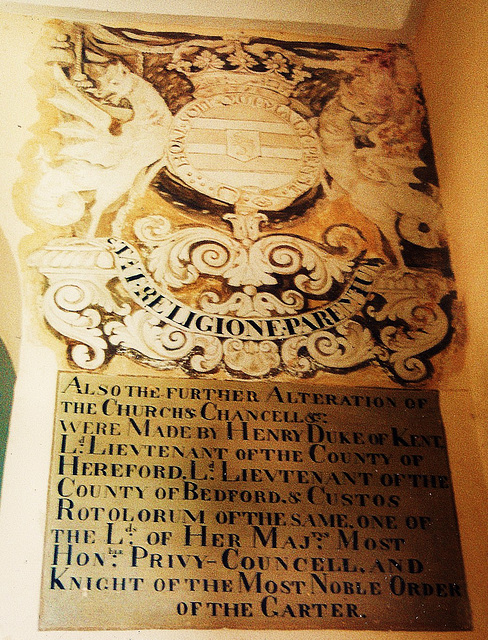 HONI SOIT QUI MAL Y PENSE
RELIGIONE·PARENTUM
ALSO THE FURTHER ALTERATION OF
THE CHURCH & CHANCELL &c:
WERE MADE BY HENRY DUKE OF KENT,
Ld: LIEVTENANT OF THE COUNTY OF
HEREFORD, Ld: LIEVTENANT OF THE
COUNTY OF BEDFORD, & CUSTOS
ROTOLORUM OF THE SAME, ONE OF
THE Lds: OF HER MAJtys MOST
HONble: PRIVY-COUNCELL, AND
KNIGHT OF THE MOST NOBLE ORDER
OF THE GARTER.